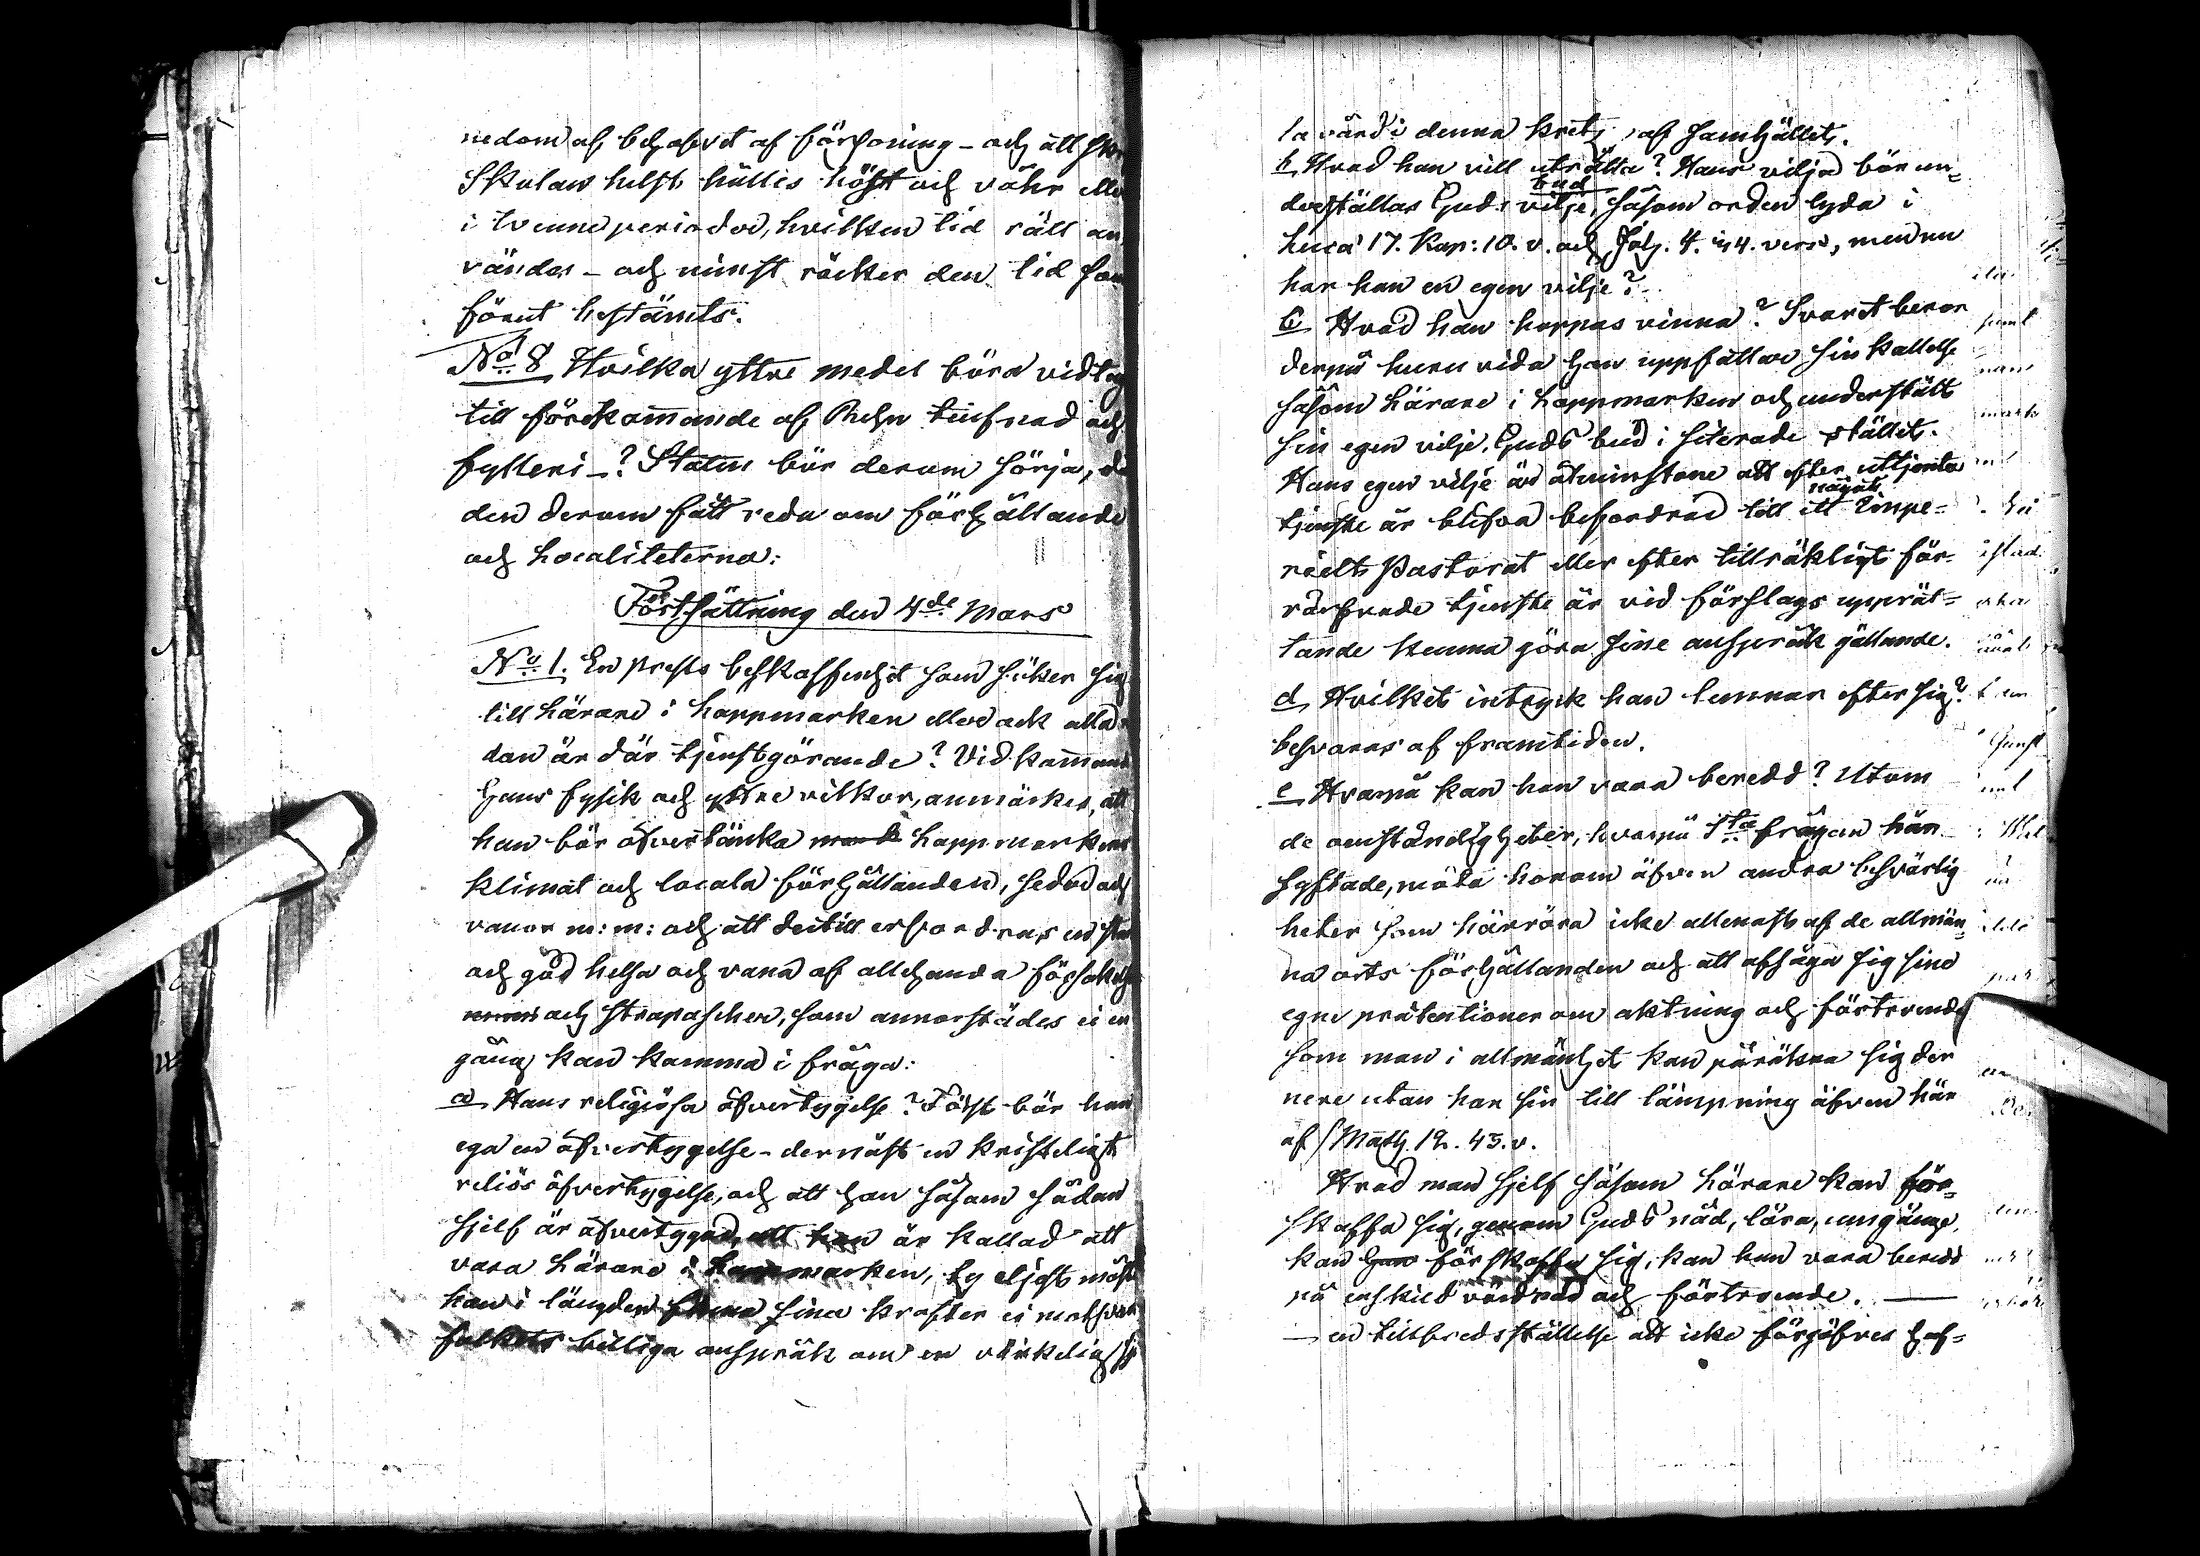 nedom och behofvet af förståning - och att
Skolan helst hålles höst och våhr eller
i tvenne perioder, hvilken tid rätt an
vändes - och minst räcker den tid som
förut bestämts.
No 8 Hvilka yttre medel böra vidtag
till förekommande af Rehn tiufnad och
fylleri -? Staten bör derom sörja, då
den derom fått reda om förhållande
och Localiteterna:
Fortsättning den 4de Mars
No 1. En Prests beskaffenhet som söker sig
till Lärare i Lappmarken eller ock alla
dan är där tjenstgörande? Vidkommand
hans fysik och yttre vilkor, anmärkes, att
han bör öfvertänka Lappmarkens
klimat och locala förhållanden, seder och
vanor m: m: och att dertill erfordras en
och god helsa och vana af allehanda försakelse
och strapascher, som annorstädes ei en
gång kan komma i fråga:
a) Hans religiösa öfvertygelse? Först bör han
ega en öfvertygelse - dernäst en kristeligt
reliös öfvertygelse, och att han såsom sådan
sjelf är öfvertygad, att han är kallad att
vara Lärare i Lappmarken, ty eljest måste
han i längden finna sina krafter ei motsvara
folkets billiga anspråk om en värkelig
la vård i denna krets af samhället.
b, Hvad han vill uträtta? Hans vilja bör un-
bud
derställas Guds vilje, såsom orden lyda i
Luca 17. Kap: 10. v. och Joh. 4. 44. vers, men nu
har han en egen vilje?
C, Hvad han hoppas vinna? Svaret beror
derpå huru vida han uppfattar sin kallelse
såsom Lärare i Lappmarken och underställt
sin egen vilje, Guds bud i siterade stället.
Hans egen vilje är åtminstone att efter uttjenta
något
tjenste år blifva befordrad till ett Impe-
riielt Pastorat eller efter tillräkligt för-
värfvade tjenste år vid förslags upprät-
tande kunna göra sine anspråk gällande.
d, Hvilket intryck han lemnar efter sig?
besvaras af framtiden.
e, Hvarpå kan han vara beredd? Utom
de omständigheter, hvarpå 1sta frågan hän-
syftade, möta honom äfven andra besvärlig
heter som härröra icke allenast af de allmän-
na orts förhållanden och att afsäga sig sina
egne prätentioner om aktning och förtroende
som man i allmänhet kan påräkna sig der
nere utan har sin till lämpning äfven här
af Math. 12. 43. v.
Hvad man sjelf såsom Lärare kan för-
skaffa sig, genom Guds nåd, lära, umgänge,
kan han förskaffa sig, kan han vara beredd
på enskild vördnad och förtroende.
- en tillfredsställelse att icke förgäfves haf-